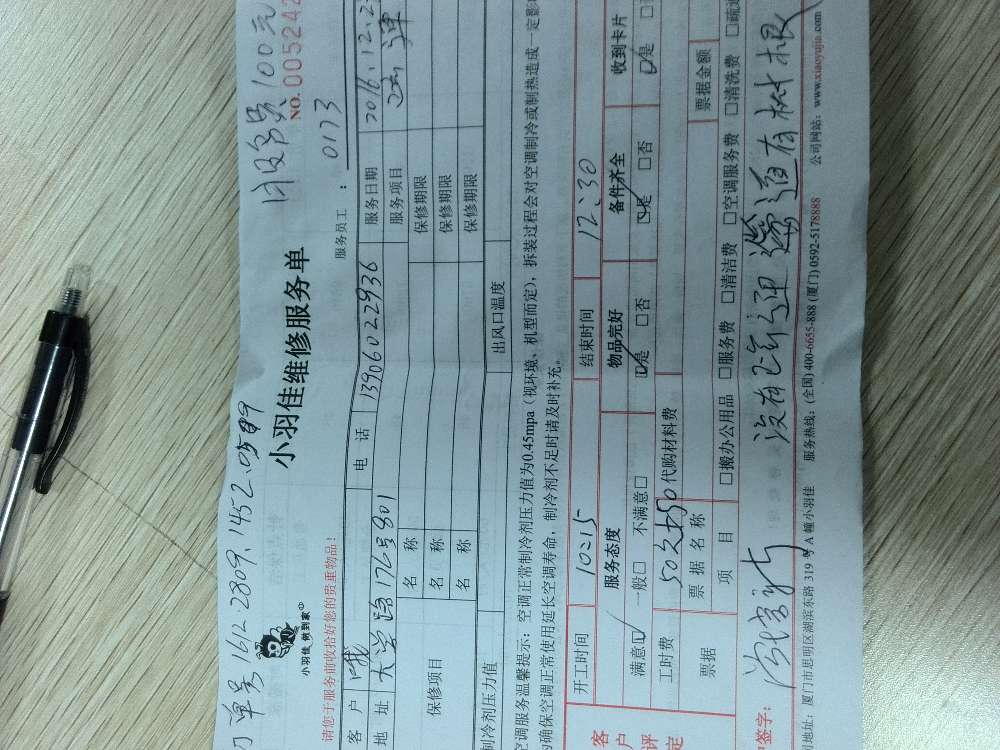 单号 1612.2809.1452.0599
已收会员100元
NO. 005242
小羽佳 做到家
小羽佳维修服务单
服务员工： 0173
请您于服务前收拾好您的贵重物品！
客 户 电 话 13960022936 服务日期 2016.12.2
地 址 大学路176号801 服务项目
保修项目
名 称 保修期限
名 称 保修期限
名 称 保修期限
制冷剂压力值 出风口温度
空调服务温馨提示：空调正常制冷剂压力值为0.45mpa（视环境、机型而定），拆装过程会对空调制冷或制热造成一定影
确保空调正常使用延长空调寿命，制冷剂不足时请及时补充。
开工时间 10:15 结束时间 12:30
客户评定
服务态度 物品完好 备件齐全 收到卡片
满意☑ 一般□ 不满意□ ☑是 □否 ☑是 □否 ☑是
工时费 代购材料费
票据 票据名称 票据金额
项 目 □搬办公用品 □服务费 □清洁费 □空调服务费 □清洗费 □疏通
签字： 没有 道有树根
地址：厦门市思明区湖滨东路 319 号 A 幢小羽佳 服务热线：(全国) 400-6655-888 (厦门) 0592-5178888 公司网站：www.xiaoyujia.com